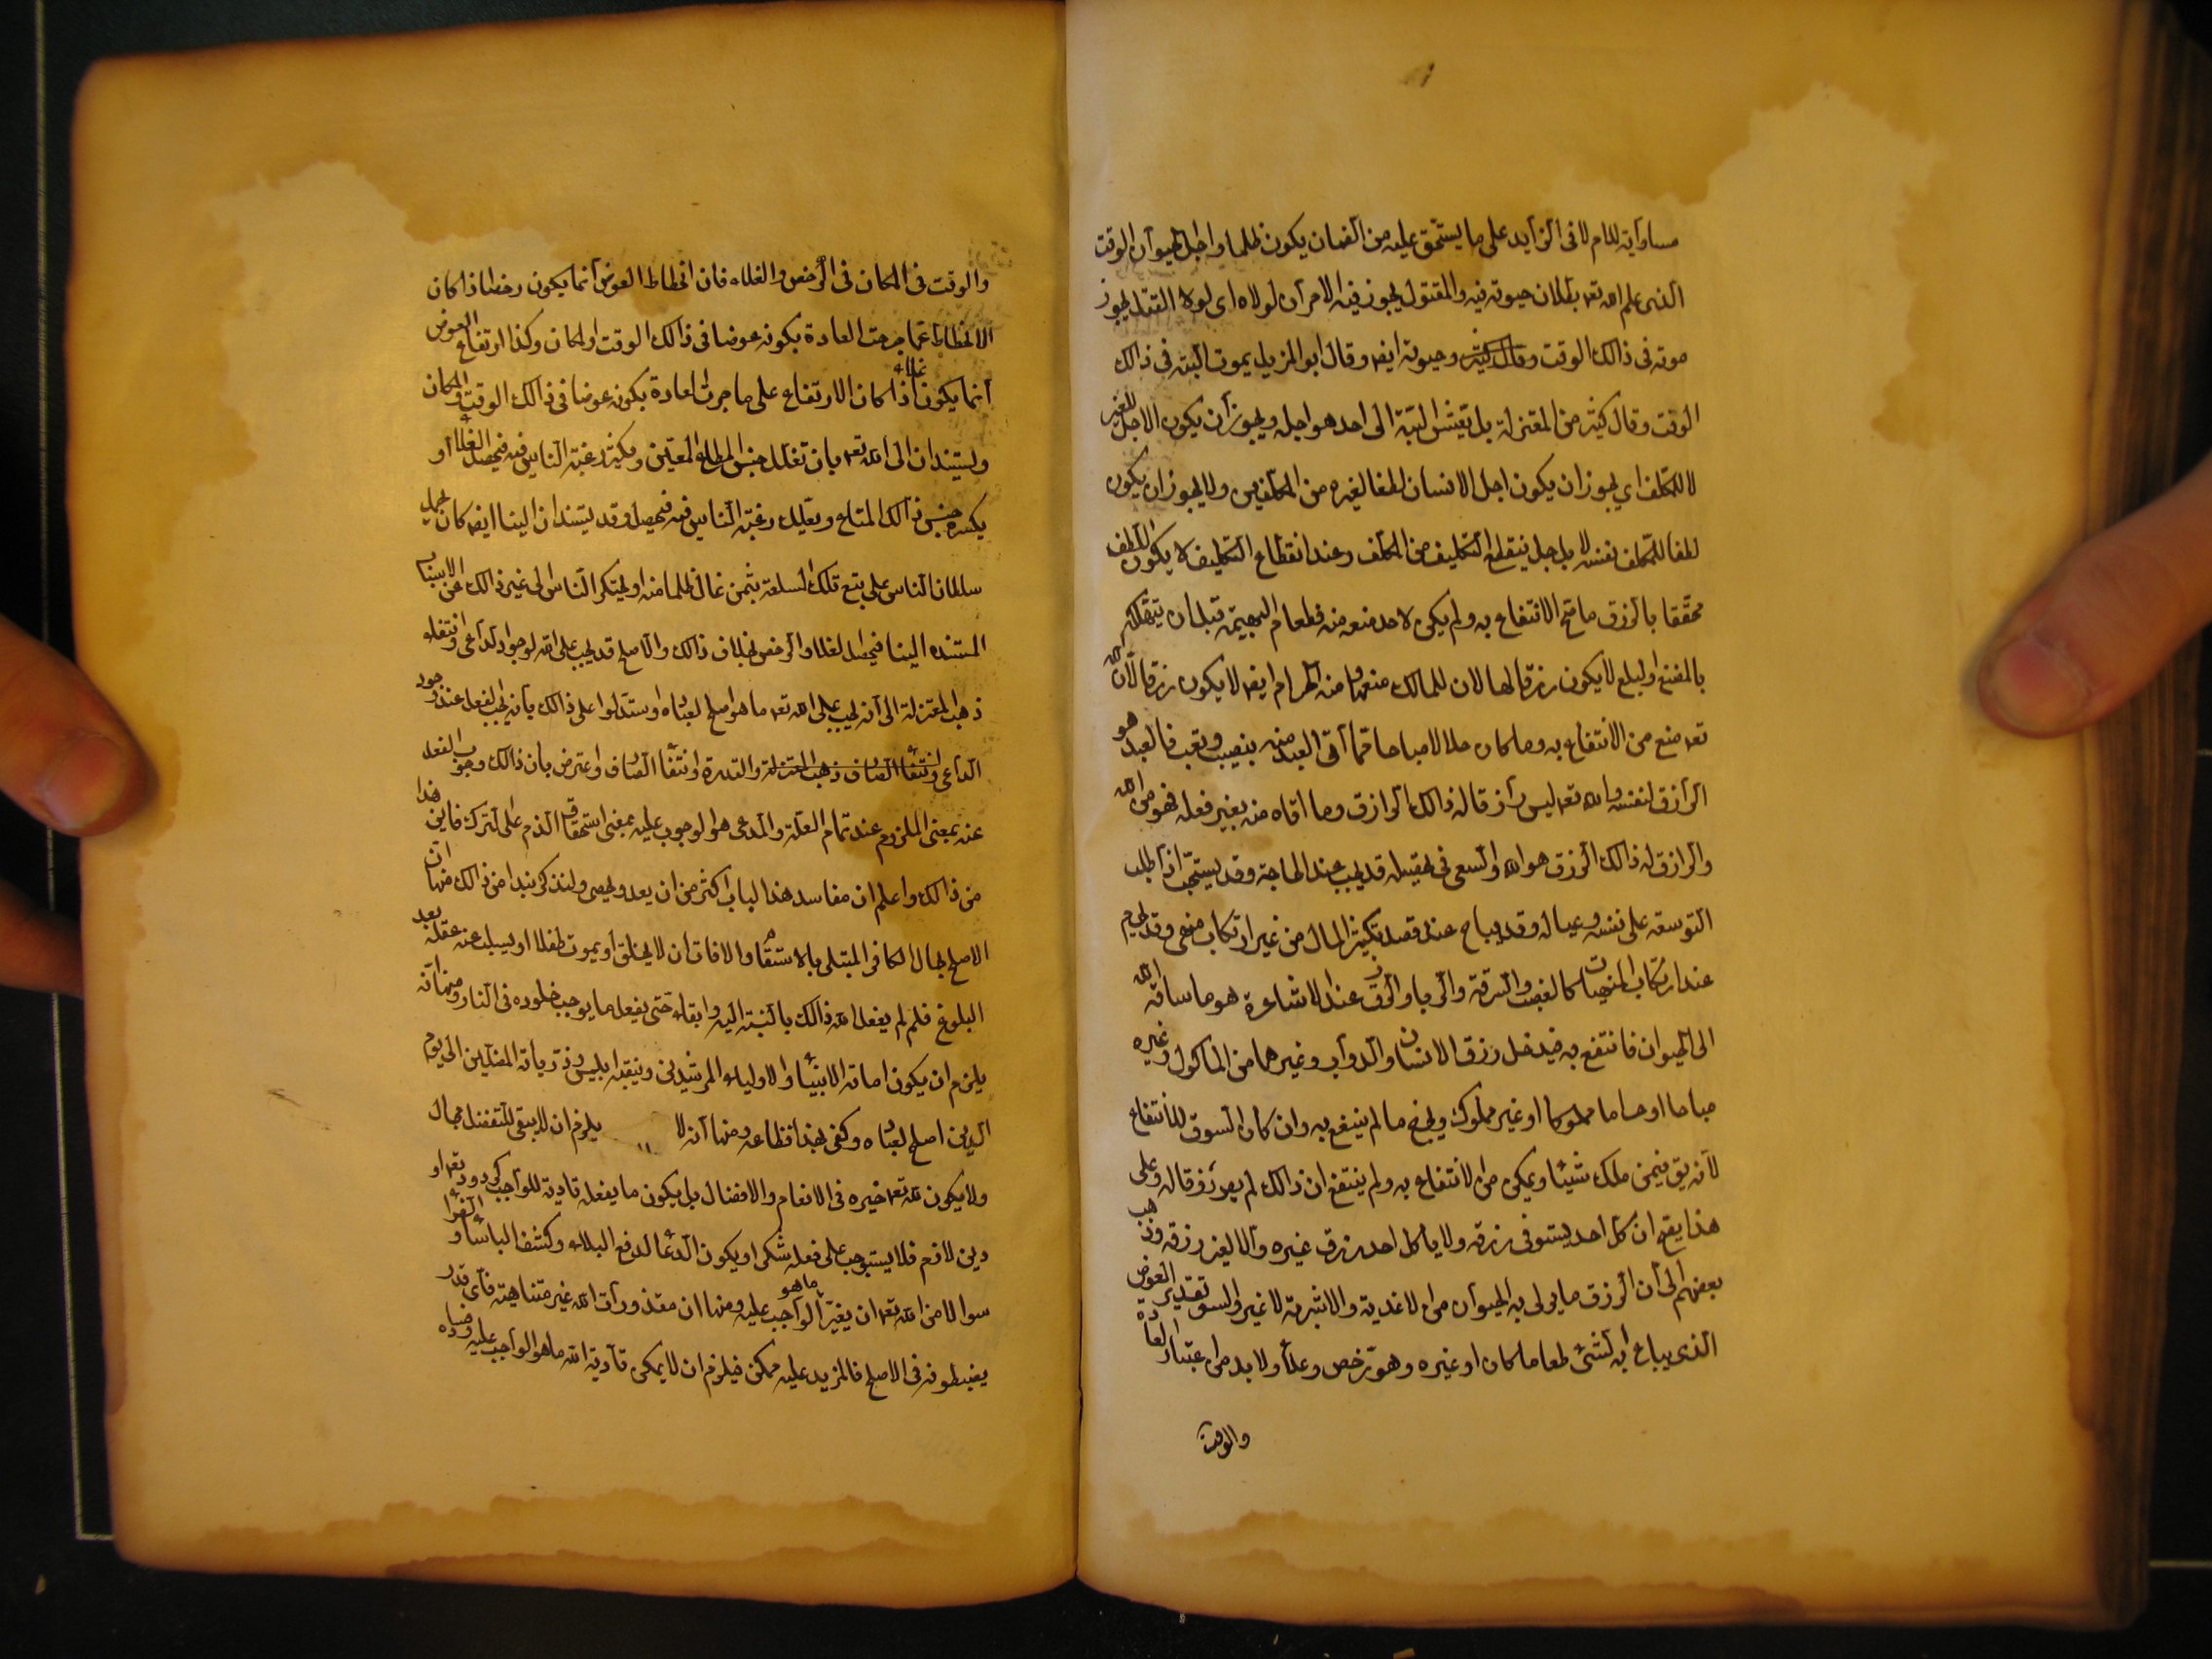 مساوآته للام لا فى الزآيد على ما يستحق عليه من الضمان يكون ظلما واجل الحيوآن الوقت
الذى علم الله تعہ بطلان حيوته فيه والمقتول يجوز فيه الامرآن لولاه اى لولا القتل يجوز
موته فى ذالك الوقت وحيوته ايضہ وقال ابو الهزيل يموت البتة فى ذالك
الوقت وقال كثير من المعتزلة بل يعيش البتة الى احد هو اجله ويجوز أن يكون الاجل للغير
لا للمكلف اي يجوز ان يكون اجل الانسان لطفا لغيره من المكلفين ولا يجوز ان يكون
لطفا للمكلف نفسه لا بل جل ينقطع التكليف من المكلف وعند انقطاع التكليف لا يكون اللطف
محققا بالرزق ما صح الانتفاع به ولم يكن لاحد منعه منه فطعام البهيمة قبل ان يتهلك
بالمضغ او لبلع لا يكون رزقا لها لان للمالك منعها منه الحرام ايضہ لا يكون رزقا لان الله
تعہ منع من الانتفاع به وما كان حلالا مباحا فما آتى العبد منه بنصيب وتعب فالعبد هو
الرآزق لنفسه والله تعہ ليس رآزقا له ذالك الرازق وما اتاه منه بغير فعله فهو من الله
والرازق له ذالك الرزق هو الله والسعى فى تحصيله قد يجب عند الحاجة وقد يستحب اذآ طلب
التوسعة على نفسه وعياله وقد يباح عند قصد تكثير المال من غير ارتكاب منهى وقد يحرم
عند ارتكاب المنهيات كالغصب والسرقة والربا والرزق عند الاشاعرة هو ما ساقه الله
الى الحيوان فانتفع به فيدخل رزق الانسان والدوآب وغيرهما من المأكول وغيره
مباحا او حراما مملوكا او غير مملوك ويخرج ما لم ينتفع به وان كان السوق للانتفاع
لانه يق فيمن ملك شيئا ويمكن من الانتفاع به ولم ينتفع ان ذالك لم يصر رزقا له وعلى
هذا يصح ان كل احد يستوفى رزقه ولا يأكل احد رزق غيره ولا الغير رزقه وذهب
بعضهم الى أن الرزق ما يربى به الحيوآن من الاغذية والاشربة لا غير والسعر تقدير العوض
الذى يباع به الشئ طعاما كان او غيره وهو رخص وغلأ ولا بد من اعتبار العادة
والوقت
والوقت فى المكان فى الرخص والغلاء فان انحطاط العوض آنما يكون رخصا اذا كان
الانحطاط عما جرت العادة بكونه عوضا فى ذالك الوقت والمكان وكذا ارتفاع العوض
آنما يكون غلاء اذا كان الارتفاع على ما جرت العادة بكونه عوضا فى ذالك الوقت والمكان
ويستندان الى الله تعہ بان تقلل جنس المطلع المعين ويكثر رغبة الناس فيه فيحصل الغلا او
يكثره جنس ذآلك المتاع ويقلل رغبة الناس فيه فيحصل وقد يستندان الينا ايضہ كان يحمل
سلطان الناس على بيع تلك السلعة بثمن غال ظلما منه او يحتكر الناس الى غير ذالك من الاسباب
المستنده الينا فيحصل الغلا والرخص بخلاف ذالك والاصلح قد يجب على الله لوجود الداعى وانتفاء
ذهب المعتزلة الى أنه يجب على الله تعہ ما هو اصلح لعباده واستدلوا على ذالك بانه يجب الفعل عند وجود
الداعى والقدرة وانتفا الصارف واعترض بان ذالك وجوب الفعل
عنه بمعنى الملزوم عند تمام العلة والمدعى هو الوجوب عليه بمعنى استحقاق الذم على الترك فاين هذا
من ذالك واعلم ان مفاسد هذا لباب اكثر من ان يعد ويحصى ولنذكر نبدا من ذالك منها ان
الاصلح بحال الكافر المبتلى بالاسقام والافات ان لا يخلق او يموت طفلا او يسلب عنه عقله بعد
البلوغ فلم لم يفعل الله ذالك بالنسبة اليه وابقاه حتى يفعل ما يوجب خلوده فى النار ومنها انه
يلزم ان يكون اماتة الانبيا والاولياء المرشدين وتبقية ابليس وذرياته المضلين الى يوم
الدين اصلح لعباده وكفى بهذا فظاعة ومنها أنه لا يلزم ان لا يبقى للتفضل مجال
ولا يكون لله تعہ خيره فى الانعام والافضال بل يكون ما يفعله تادية للوآجب كرد وديعة او
دين لازم فلا يستوجب على فعله شكرا ويكون الدعا لدفع البلاء وكشف الباسأ والضرا
سوالا من الله تعہ ان يغير ما هو الوآجب عليه ومنها ان مقدورآت الله غير متناهية فآى قدر
يضبطونه فى الاصلح فالمزيد عليه ممكن فيلزم ان لا يمكن تآدية الله ما هو الوآجب عليه